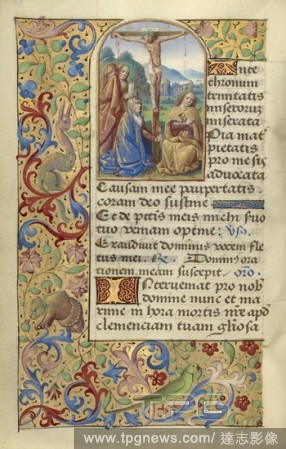 Ante
thronum
trinitatis
miseroruz
miserata
Pia mat
pietatis
pro me sis
advocata
Causam mee paupertatis.
coram deo sustine
Et de pctis meis michi suo
tuo veniam optine: Vs.
Exaudivit dominus vocem fle
tus mei. R. Dominus ora
tionem meam suscepit. oro.
Interveniat pro nob
domine nunc et ma
xime in hora mortis nre apd
clemenciam tuam gliosa
TPG
www.tpgnews.com/ 達志影像